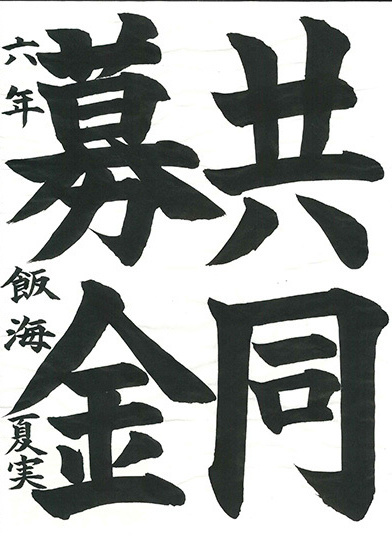 共同
募金
六年 飯海 夏実